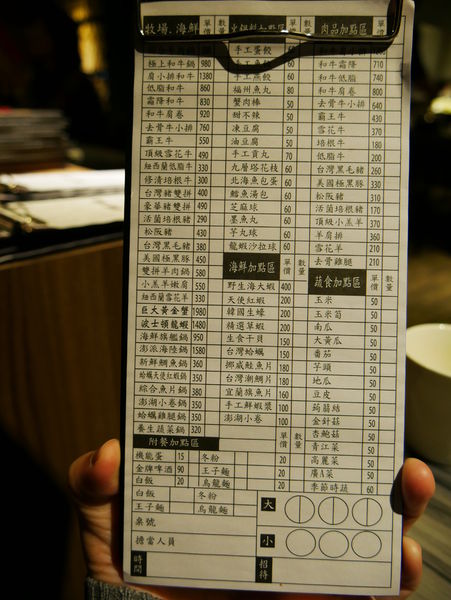 牧場、海鮮 單價 數量
極上和牛鍋 980
肩小排和牛 1380
低脂和牛 860
霜降和牛 830
和牛肩卷 920
去骨牛小排 760
霸王牛 550
頂級雪花牛 490
紐西蘭低脂牛 360
修清培根牛 300
台灣豬雙拼 400
豪華豬雙拼 490
活菌培根豬 290
松阪豬 430
台灣黑毛豬 380
美國極黑豚 450
雙拼羊肉鍋 580
小羔羊嫩肩 550
紐西蘭雪花羊 330
巨大黃金蟹 1980
波士頓龍蝦 1480
海鮮旗艦鍋 950
澎派海陸鍋 1580
新鮮鱈魚鍋 360
蛤蠣天使紅蝦鍋 350
綜合魚片鍋 380
澎湖小卷鍋 350
蛤蠣雞腿鍋 350
養生蔬菜鍋 320
單價 數量
手工蛋餃
手工魚餃 60
手工燕餃 60
福州魚丸 80
蟹肉棒 50
甜不辣 50
凍豆腐 50
油豆腐 50
手工貢丸 70
九層塔花枝 60
北海魚包蛋 60
鱈魚湯包 60
芝麻球 60
墨魚丸 60
芋丸球 60
龍蝦沙拉球 60
海鮮加點區 單價 數量
野生海大蝦 400
天使紅蝦 200
韓國生蠔 200
精選草蝦 200
生食干貝 150
台灣蛤蠣 150
挪威鮭魚片 180
台灣潮鯛片 180
宜蘭旗魚片 160
手工鮮蝦漿 100
澎湖小卷 100
肉品加點區 單價 數量
和牛霜降 710
和牛低脂 740
和牛肩卷 800
去骨牛小排 640
霸王牛 430
雪花牛 370
培根牛 180
低脂牛 200
台灣黑毛豬 260
美國極黑豚 330
松阪豬 310
活菌豬 170
頂級小羔羊 370
羊肩排 360
雪花羊 210
去骨雞腿 210
蔬食加點區 單價 數量
玉米 50
玉米筍 50
南瓜 50
大黃瓜 50
番茄 50
芋頭 50
地瓜 50
豆皮 50
蒟蒻結 50
金針菇 50
杏鮑菇 50
青江菜 50
高麗菜 50
廣A菜 50
季節時蔬 60
附餐加點區 單價 數量
機能蛋 15 冬粉 20
金牌啤酒 90 王子麵 20
白飯 20 烏龍麵 20
白飯 冬粉
王子麵 烏龍麵
桌號
擔當人員
時間 招待
大
小